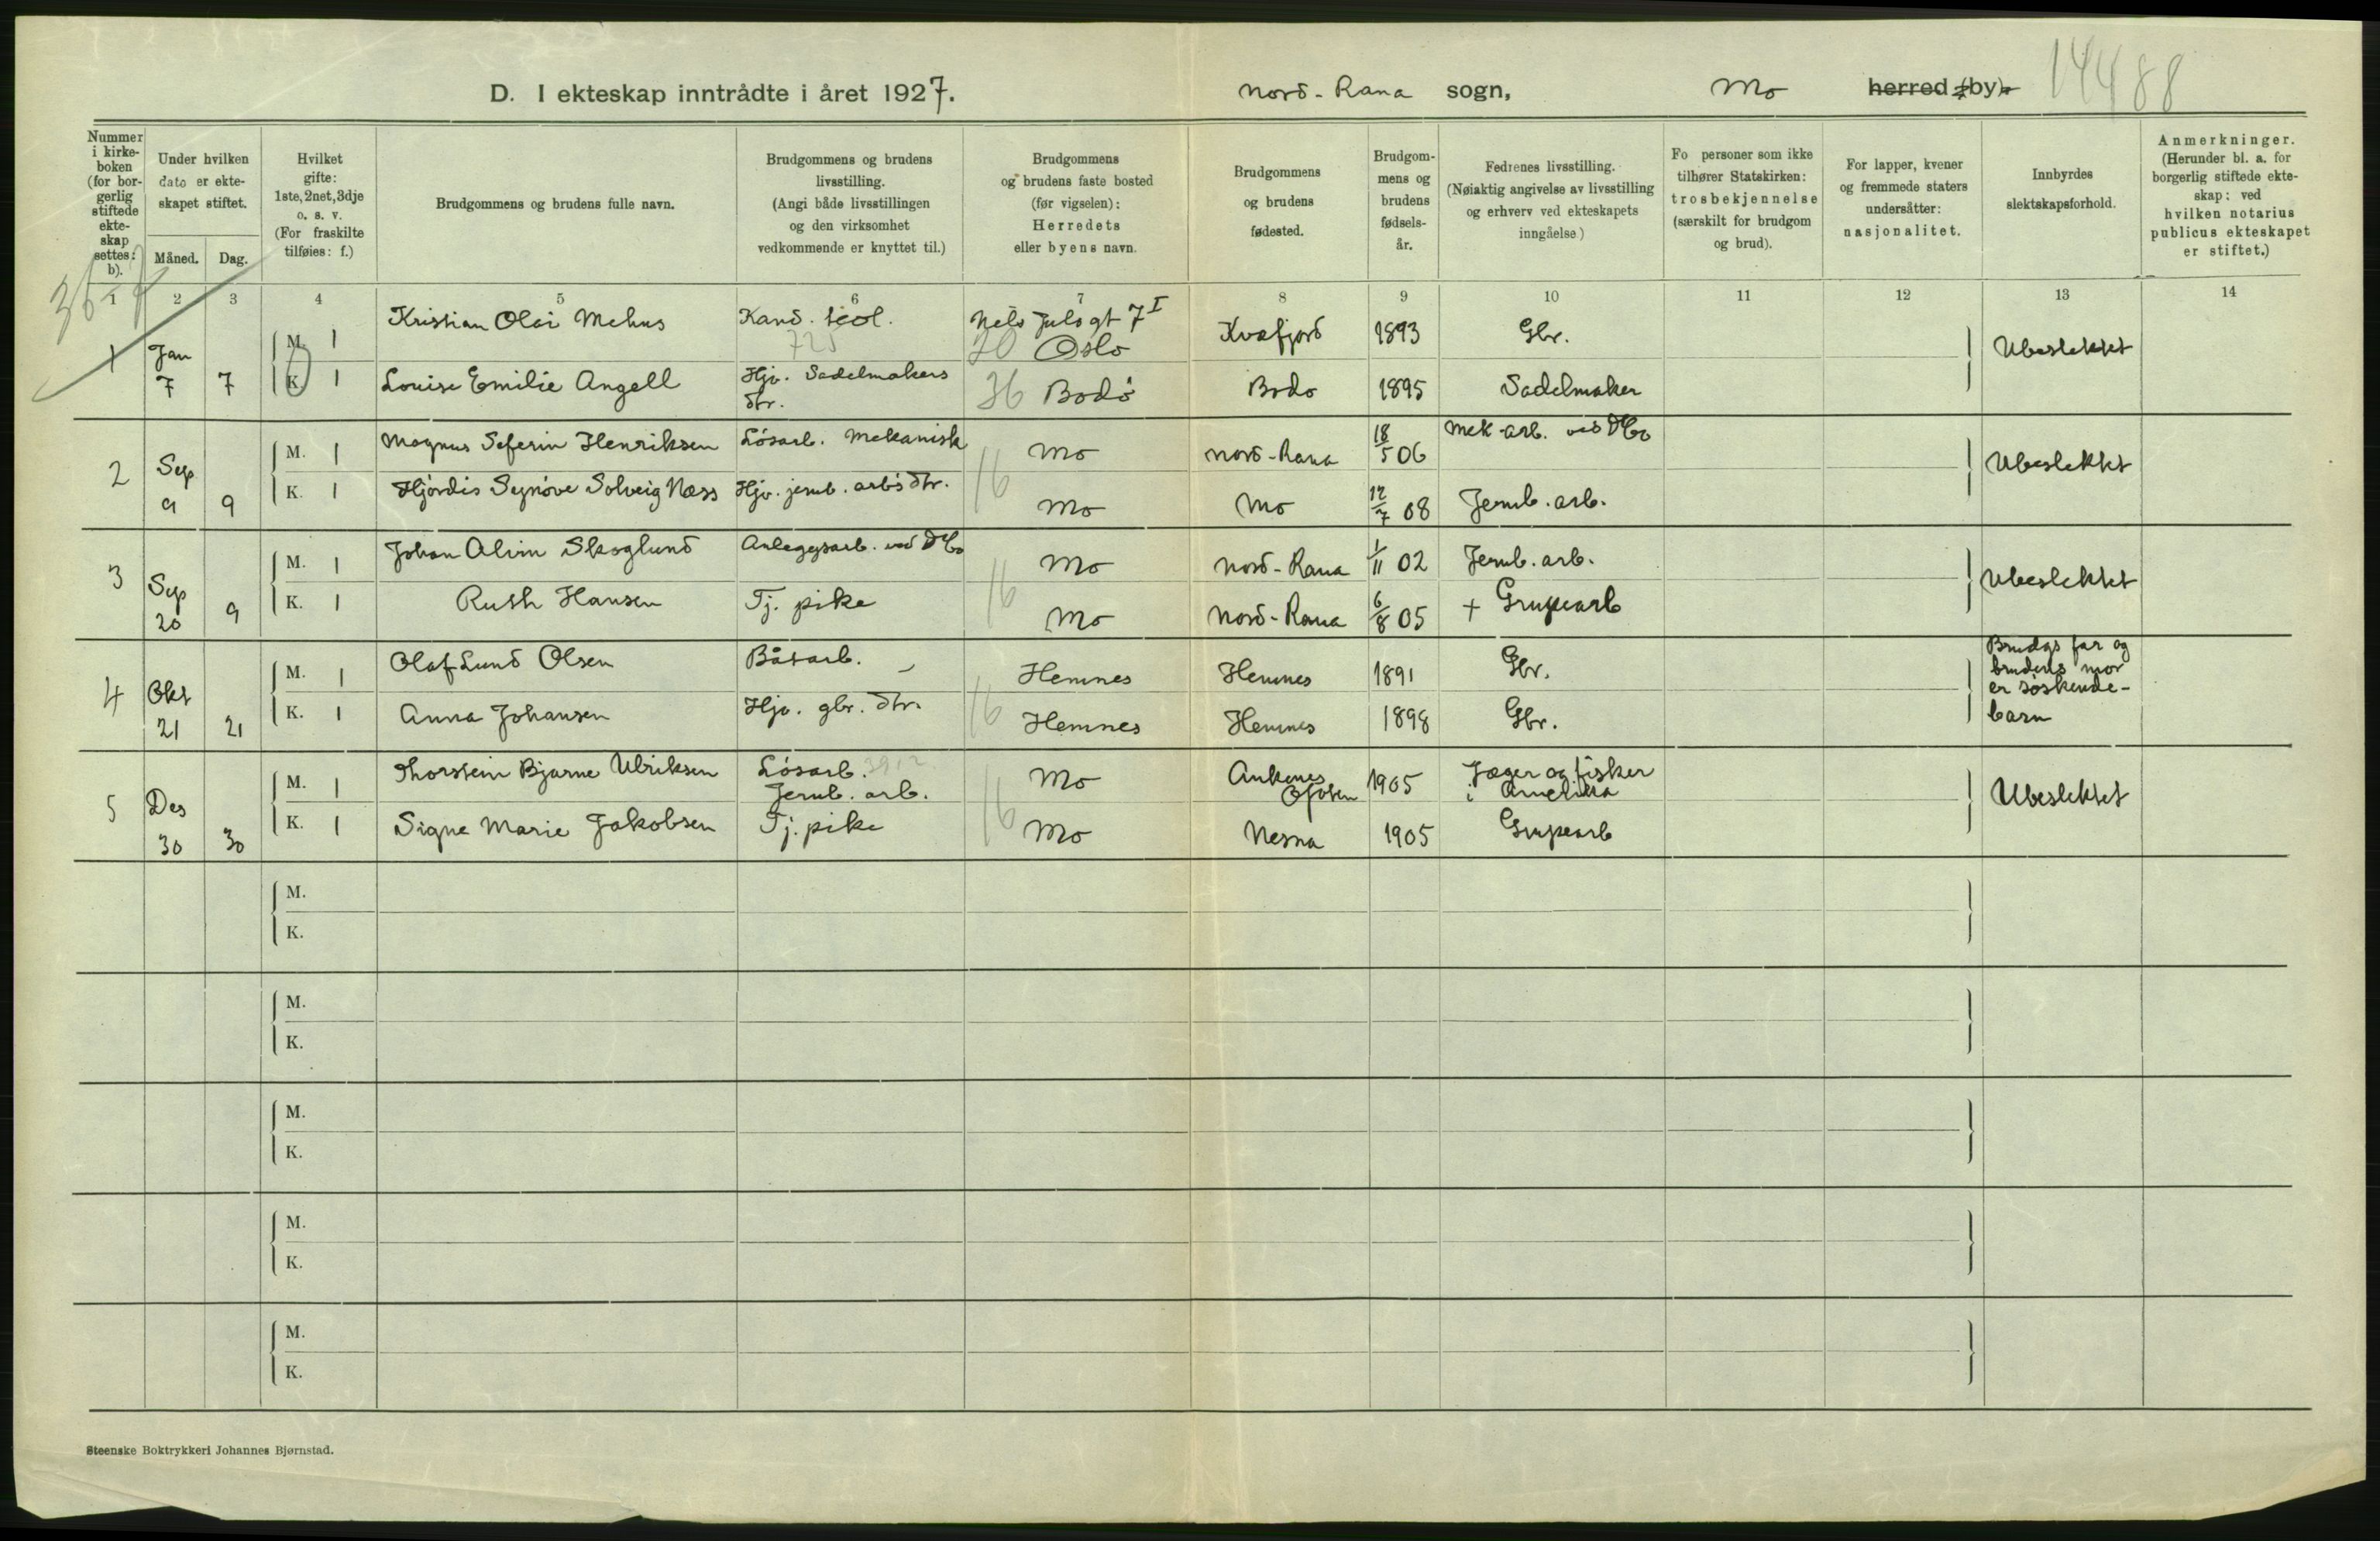 D. I ekteskap inntrådte i året 1927. Nord-Rana sogn, Mo herred (by) 14488
Nummer i kirkeboken (for borgerlig stiftede ekteskap settes: b).
Under hvilken dato er ekteskapet stiftet.
Måned. Dag.
Hvilket gifte: 1ste, 2net, 3dje o. s. v. (For fraskilte tilføies: f.)
Brudgommens og brudens fulle navn.
Brudgommens og brudens livsstilling. (Angi både livsstillingen og den virksomhet vedkommende er knyttet til.)
Brudgommens og brudens faste bosted (før vigselen): Herredets eller byens navn.
Brudgommens og brudens fødested.
Brudgommens og brudens fødselsår.
Fedrenes livsstilling. (Nøiaktig angivelse av livsstilling og erhverv ved ekteskapets inngåelse)
Fo personer som ikke tilhører Statskirken: trosbekjennelse (særskilt for brudgom og brud).
For lapper, kvener og fremmede staters undersåtter: nasjonalitet.
Innbyrdes slektskapsforhold.
Anmerkninger. (Herunder bl. a. for borgerlig stiftede ekteskap: ved hvilken notarius publicus ekteskapet er stiftet.)
1 2 3 4 5 6 7 8 9 10 11 12 13 14
1 Jan 7 7 M. 1 Kristian Olai Mehus Kand. teol. 725 Nels Juls gt 7 I 20 Oslo Kvæfjord 1893 Gbr. Ubeslektet
K. 1 Louise Emilie Angell Hjv. Sadelmakers dtr. 36 Bodö Bodo 1895 Sadelmaker
2 Sep 9 9 M. 1 Magnus Seferin Henriksen Lösarb. Mekanisk 16 Mo Nord-Rana 18/5 06 Mek-arb. ved Ubeslektet
K. 1 Hjördis Synöve Solveig Næss Hjv. jernb. arb's dtr. Mo Mo 12/7 08 Jernb. arb.
3 Sep 20 9 M. 1 Johan Alvin Skoglund Anleggsarb. ved 16 Mo Nord-Rana 1/11 02 Jernb. arb. Ubeslektet
K. 1 Ruth Hansen Tj. pike Mo Nord-Rana 6/8 05 + Grupearb
4 Okt 21 21 M. 1 Olaf Lund Olsen Båtarb. 16 Hemnes Hemnes 1891 Gbr. Brudgs far og brudens mor er söskende-barn
K. 1 Anna Johansen Hjv. gbr. dtr. Hemnes Hemnes 1898 Gbr.
5 Des 30 30 M. 1 Thorstein Bjarne Ulriksen Lösarb. Jernb. arb. 16 Mo Ankenes Ofoten 1905 Jæger og fisker i Amerika Ubeslektet
K. 1 Signe Marie Jakobsen Tj. pike Mo Nesna 1905 Grupearb
M.
K.
M.
K.
M.
K.
M.
K.
M.
K.
Steenske Boktrykkeri Johannes Bjørnstad.